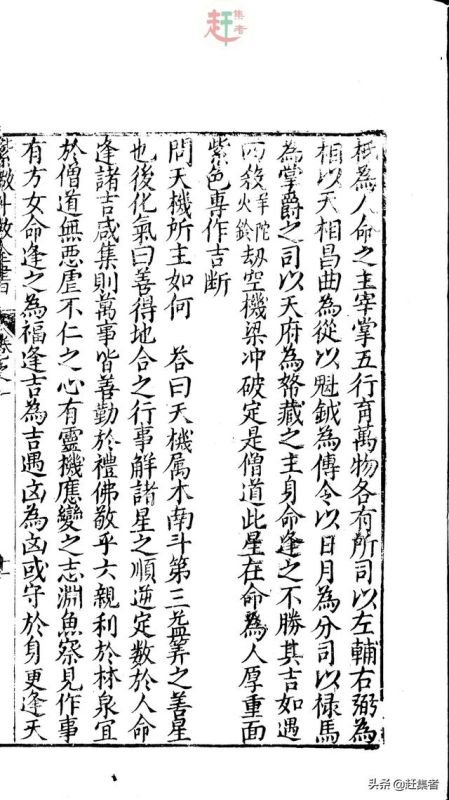 赶集者
樞為人命之主宰掌五行育萬物各有所司以左輔右弼為
相以天相昌曲為從以魁鉞為傳令以日月為分司以禄馬
為掌爵之司以天府為帑藏之主身命逢之不勝其吉如遇
四殺羊陀火鈴劫空機梁冲破定是僧道此星在命為人厚重面
紫色專作吉断
問天機所主如何 答曰天機属木南斗第三益筭之善星
也後化氣曰善得地合之行事解諸星之順逆定數於人命
逢諸吉咸集則萬事皆善勤於禮佛敬乎六親利於林泉宜
於僧道無惡虐不仁之心有靈機應變之志淵魚察見作事
有方女命逢之為福逢吉為吉遇凶為凶或守於身更逢天
斗数全書 卷之一
头条 @赶集者